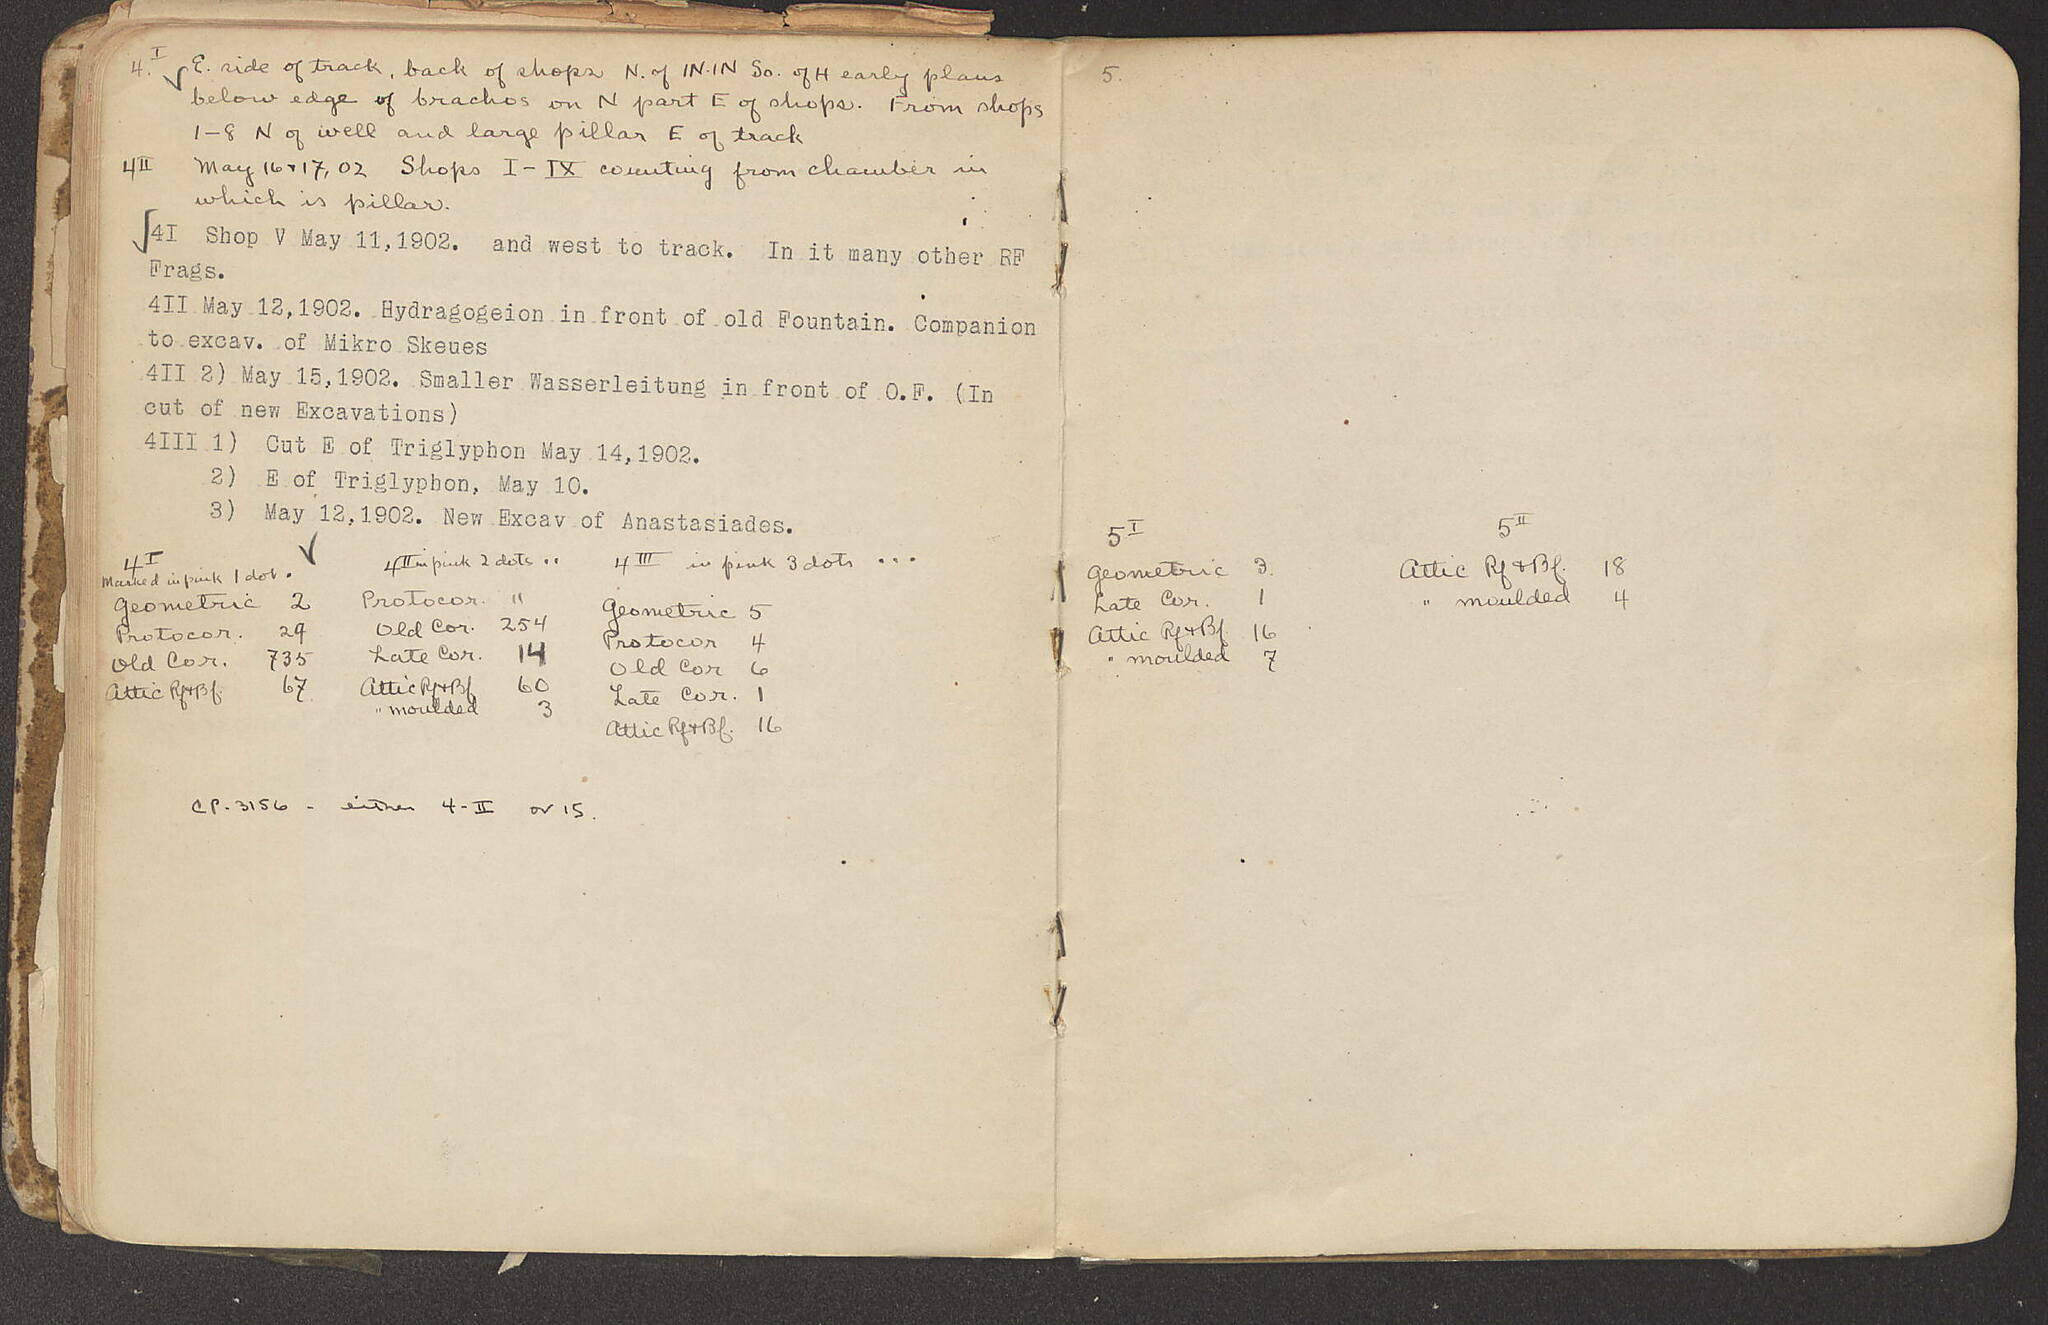 4.I E. side of track, back of shops N. of IN.IN So. of H early plans
below edge of brachos on N part E of shops. From shops
1-8 N of well and large pillar E of track
4II May 16+17, 02 Shops I-IX counting from chamber in
which is pillar.
4I Shop V May 11,1902. and west to track. In it many other RF
Frags.
4II May 12,1902. Hydragogeion in front of old Fountain. Companion
to excav. of Mikro Skeues
4II 2) May 15,1902. Smaller Wasserleitung in front of O.F. (In
cut of new Excavations)
4III 1) Cut E of Triglyphon May 14,1902.
2) E of Triglyphon, May 10.
3) May 12,1902. New Excav of Anastasiades.
4I
Marked in pink 1 dot .
Geometric 2
Protocor. 29
Old Cor. 735
Attic Rf+Bf. 67
4II in pink 2 dots ..
Protocor. "
Old Cor. 254
Late Cor. 14
Attic Rf+Bf 60
" moulded 3
4III in pink 3 dots ...
Geometric 5
Protocor 4
Old Cor 6
Late Cor. 1
Attic Rf+Bf. 16
CP-3156 - either 4-II or 15.
5.
5I
Geometric 3.
Late Cor. 1
Attic Rf+Bf 16
" moulded 7
5II
Attic Rf+Bf. 18
" moulded 4